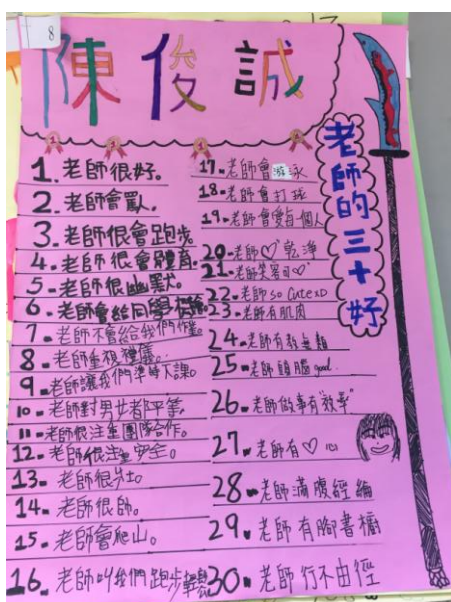 8
陳俊誠
老師的三十好
1.老師很好。
2.老師會罵人。
3.老師很會跑步
4.老師很會體育。
5.老師很幽默。
6.老師會給同學機會。
7.老師不會給我們作業。
8.老師重視禮儀。
9.老師讓我們準時下課。
10.老師對男女都平等。
11.老師很注重團隊合作。
12.老師很注重安全。
13.老師很壯。
14.老師很帥。
15.老師會爬山。
16.老師叫我們跑步
17.老師會游泳
18.老師會打球
19.老師會愛每一個人
20.老師♡乾淨
21.老師笑容可♡
22.老師 so cute xD
23.老師有肌肉
24.老師有教無類
25.老師頭腦 good.
26.老師做事有"效率"
27.老師有♡心
28.老師滿腹經綸
29.老師有腳書櫥
30.老師行不由徑